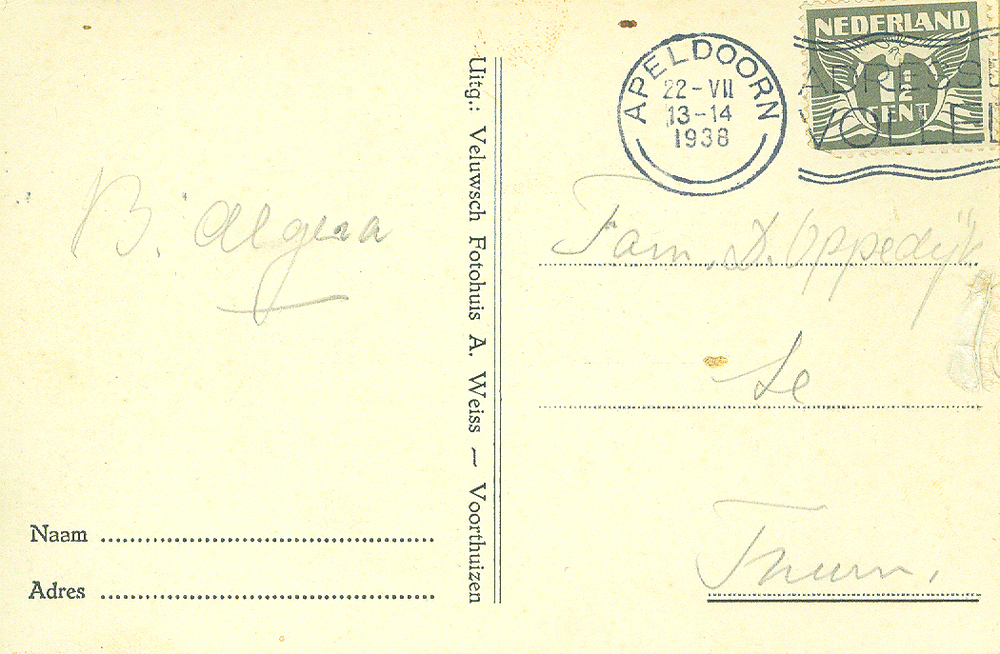 B. Algera
Naam
Adres
Uitg.: Veluwsch Fotohuis A. Weiss — Voorthuizen
APELDOORN
22-VII
13-14
1938
NEDERLAND
1½
CENT
ADRESS
VOLLE
Fam. D. Oppedijk
te